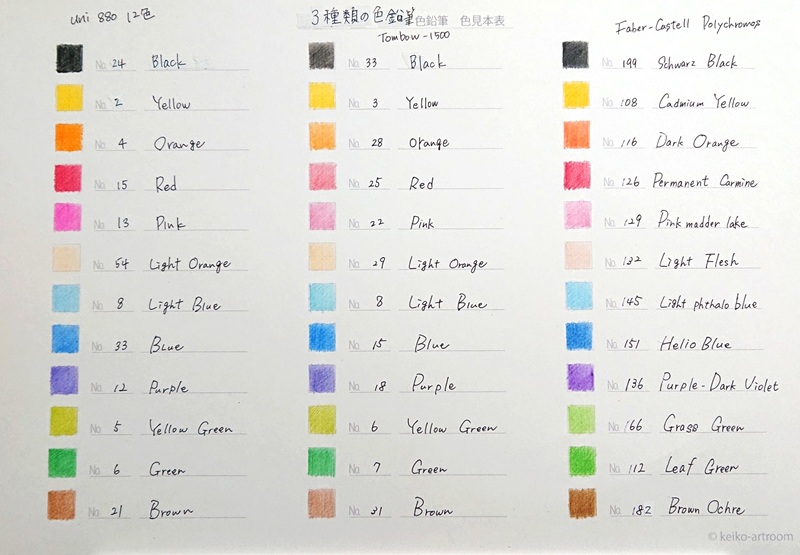 uni 880 12色
No. 24 Black
No. 2 Yellow
No. 4 Orange
No. 15 Red
No. 13 Pink
No. 54 Light Orange
No. 8 Light Blue
No. 33 Blue
No. 12 Purple
No. 5 Yellow Green
No. 6 Green
No. 21 Brown
3種類の色鉛筆 色鉛筆 色見本表
Tombow-1500
No. 33 Black
No. 3 Yellow
No. 28 Orange
No. 25 Red
No. 22 Pink
No. 29 Light Orange
No. 8 Light Blue
No. 15 Blue
No. 18 Purple
No. 6 Yellow Green
No. 7 Green
No. 31 Brown
Faber-Castell Polychromos
No. 199 Schwarz Black
No. 108 Cadmium Yellow
No. 116 Dark Orange
No. 126 Permanent Carmine
No. 129 Pink madder lake
No. 132 Light Flesh
No. 145 Light phthalo blue
No. 151 Helio Blue
No. 136 Purple-Dark Violet
No. 166 Grass Green
No. 112 Leaf Green
No. 182 Brown Ochre
© keiko-artroom